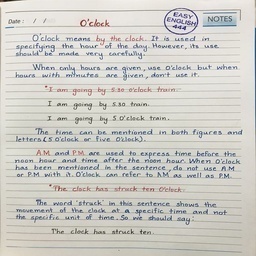 Date: / /
O'clock
EASY
ENGLISH
444
NOTES
O'clock means by the clock. It is used in
specifying the hour of the day. However, its use
should be made very carefully.
When only hours are given, use O'clock but when
hours with minutes are given, don't use it.
*I am going by 5.30 o'clock train.
I am going by 5.30 train.
I am going by 5 O'clock train.
The time can be mentioned in both figures and
letters (5 O'clock or five O'clock).
A.M. and P.M. are used to express time before the
noon hour and time after the noon hour. When O'clock
has been mentioned in the sentence, do not use A.M
or P.M with it. O'clock can refer to A.M as well as P.M.
*The clock has struck ten O'clock.
The word 'struck' in this sentence shows the
movement of the clock at a specific time and not
the specific unit of time. So we should say:
The clock has struck ten.